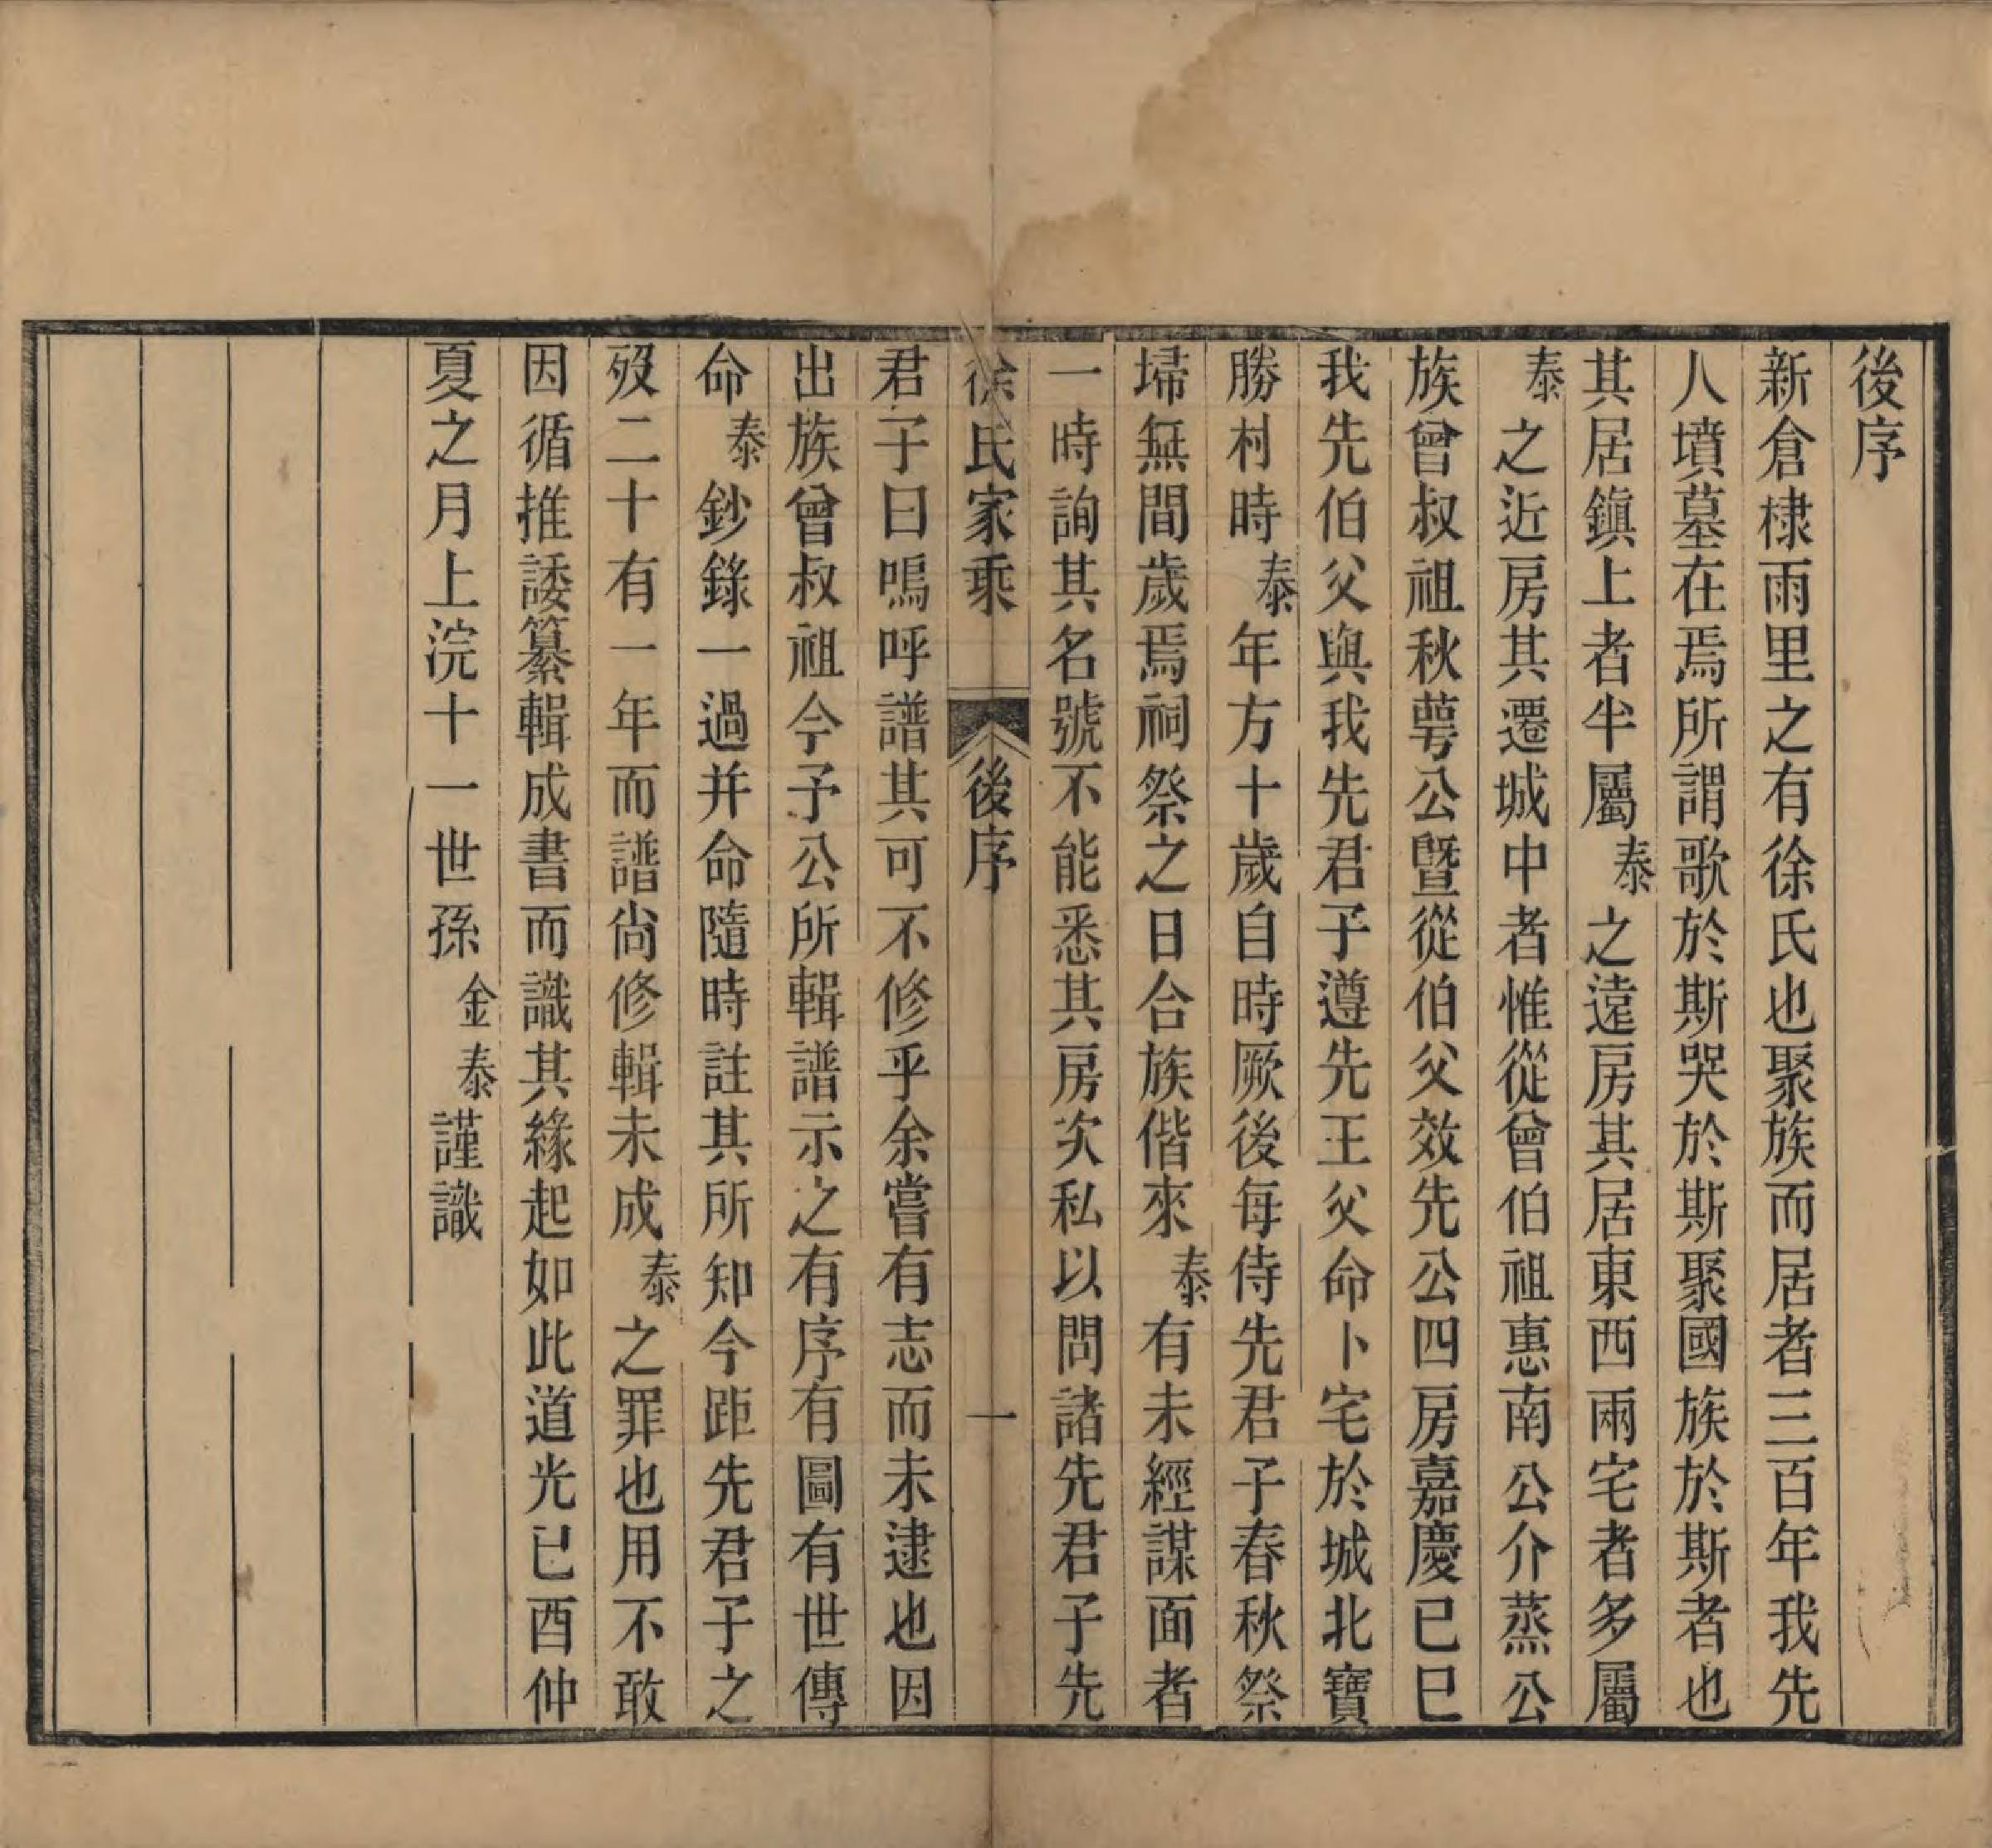 後序
新倉棣雨里之有徐氏也聚族而居者三百年我先
人墳墓在焉所謂歌於斯哭於斯聚國族於斯者也
其居鎭上者半屬泰之遠房其居東西兩宅者多屬
泰之近房其遷城中者惟從曾伯祖惠南公介蒸公
族曾叔祖秋蕚公暨從伯父效先公四房嘉慶己巳
我先伯父與我先君子遵先王父命卜宅於城北寶
勝村時泰年方十歲自時厥後每侍先君子春秋祭
埽無間歲焉祠祭之日合族偕來泰有未經謀面者
一時詢其名號不能悉其房次私以問諸先君子先
徐氏家乘 後序 一
君子曰嗚呼譜其可不修乎余嘗有志而未逮也因
出族曾叔祖今予公所輯譜示之有序有圖有世傳
命泰鈔錄一過并命隨時註其所知今距先君子之
歿二十有一年而譜尙修輯未成泰之罪也用不敢
因循推諉纂輯成書而識其緣起如此道光已酉仲
夏之月上浣十一世孫金泰謹識